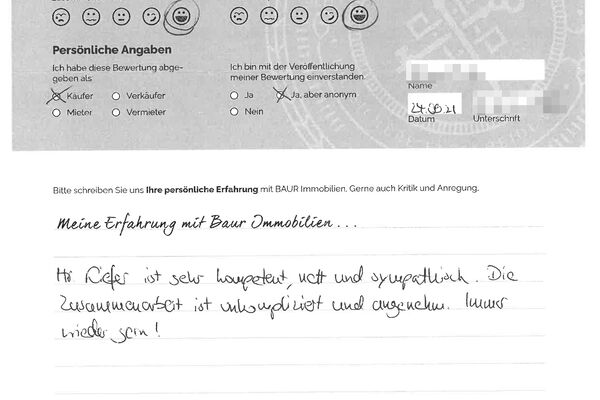 Persönliche Angaben
Ich habe diese Bewertung abge-
geben als
Käufer
Verkäufer
Mieter
Vermieter
Ich bin mit der Veröffentlichung
meiner Bewertung einverstanden.
Ja
Ja, aber anonym
Nein
Name
Datum
Unterschrift
Bitte schreiben Sie uns Ihre persönliche Erfahrung mit BAUR Immobilien. Gerne auch Kritik und Anregung.
Meine Erfahrung mit Baur Immobilien...
Hr Kiefer ist sehr kompetent, nett und sympathisch. Die
Zusammenarbeit ist unkompliziert und angenehm. Immer
wieder gern!